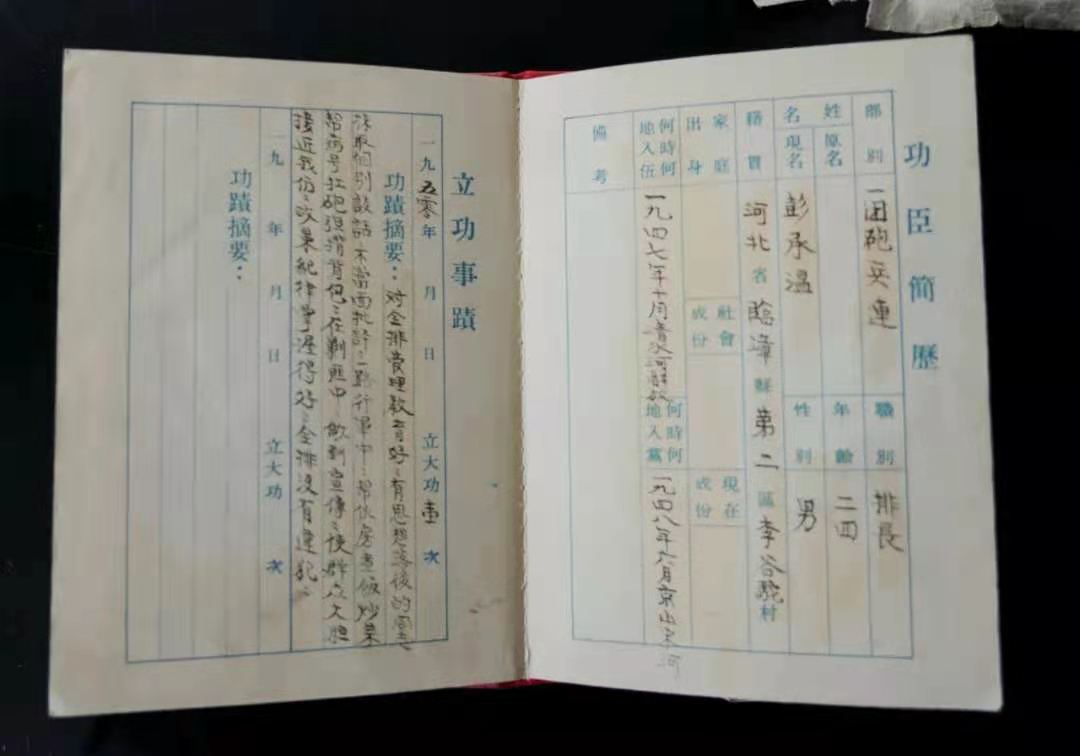 功臣簡歷
部別 一团砲兵連 職別 排長
姓名 原名 年齡 二四
現名 彭承温 性別 男
籍貫 河北省臨漳縣第二區李谷驼村
家庭出身 社會成份 現在成份
何時何地入伍 一九四七年十月清水河解放 何時何地入黨 一九四八年六月京山
備考
立功事蹟
一九五零年 月 日 立大功壹次
功蹟摘要：对全排管理教育好：有思想落後的同志
採取個别談話不當面批評：一路行軍中：帮伙房煮飯炒菜
帮病号扛砲弹揹背包：在剿匪中做到宣傳：使群众大胆
接近我们：政策紀律掌握得好：全排没有違犯：
一九 年 月 日 立大功 次
功蹟摘要：